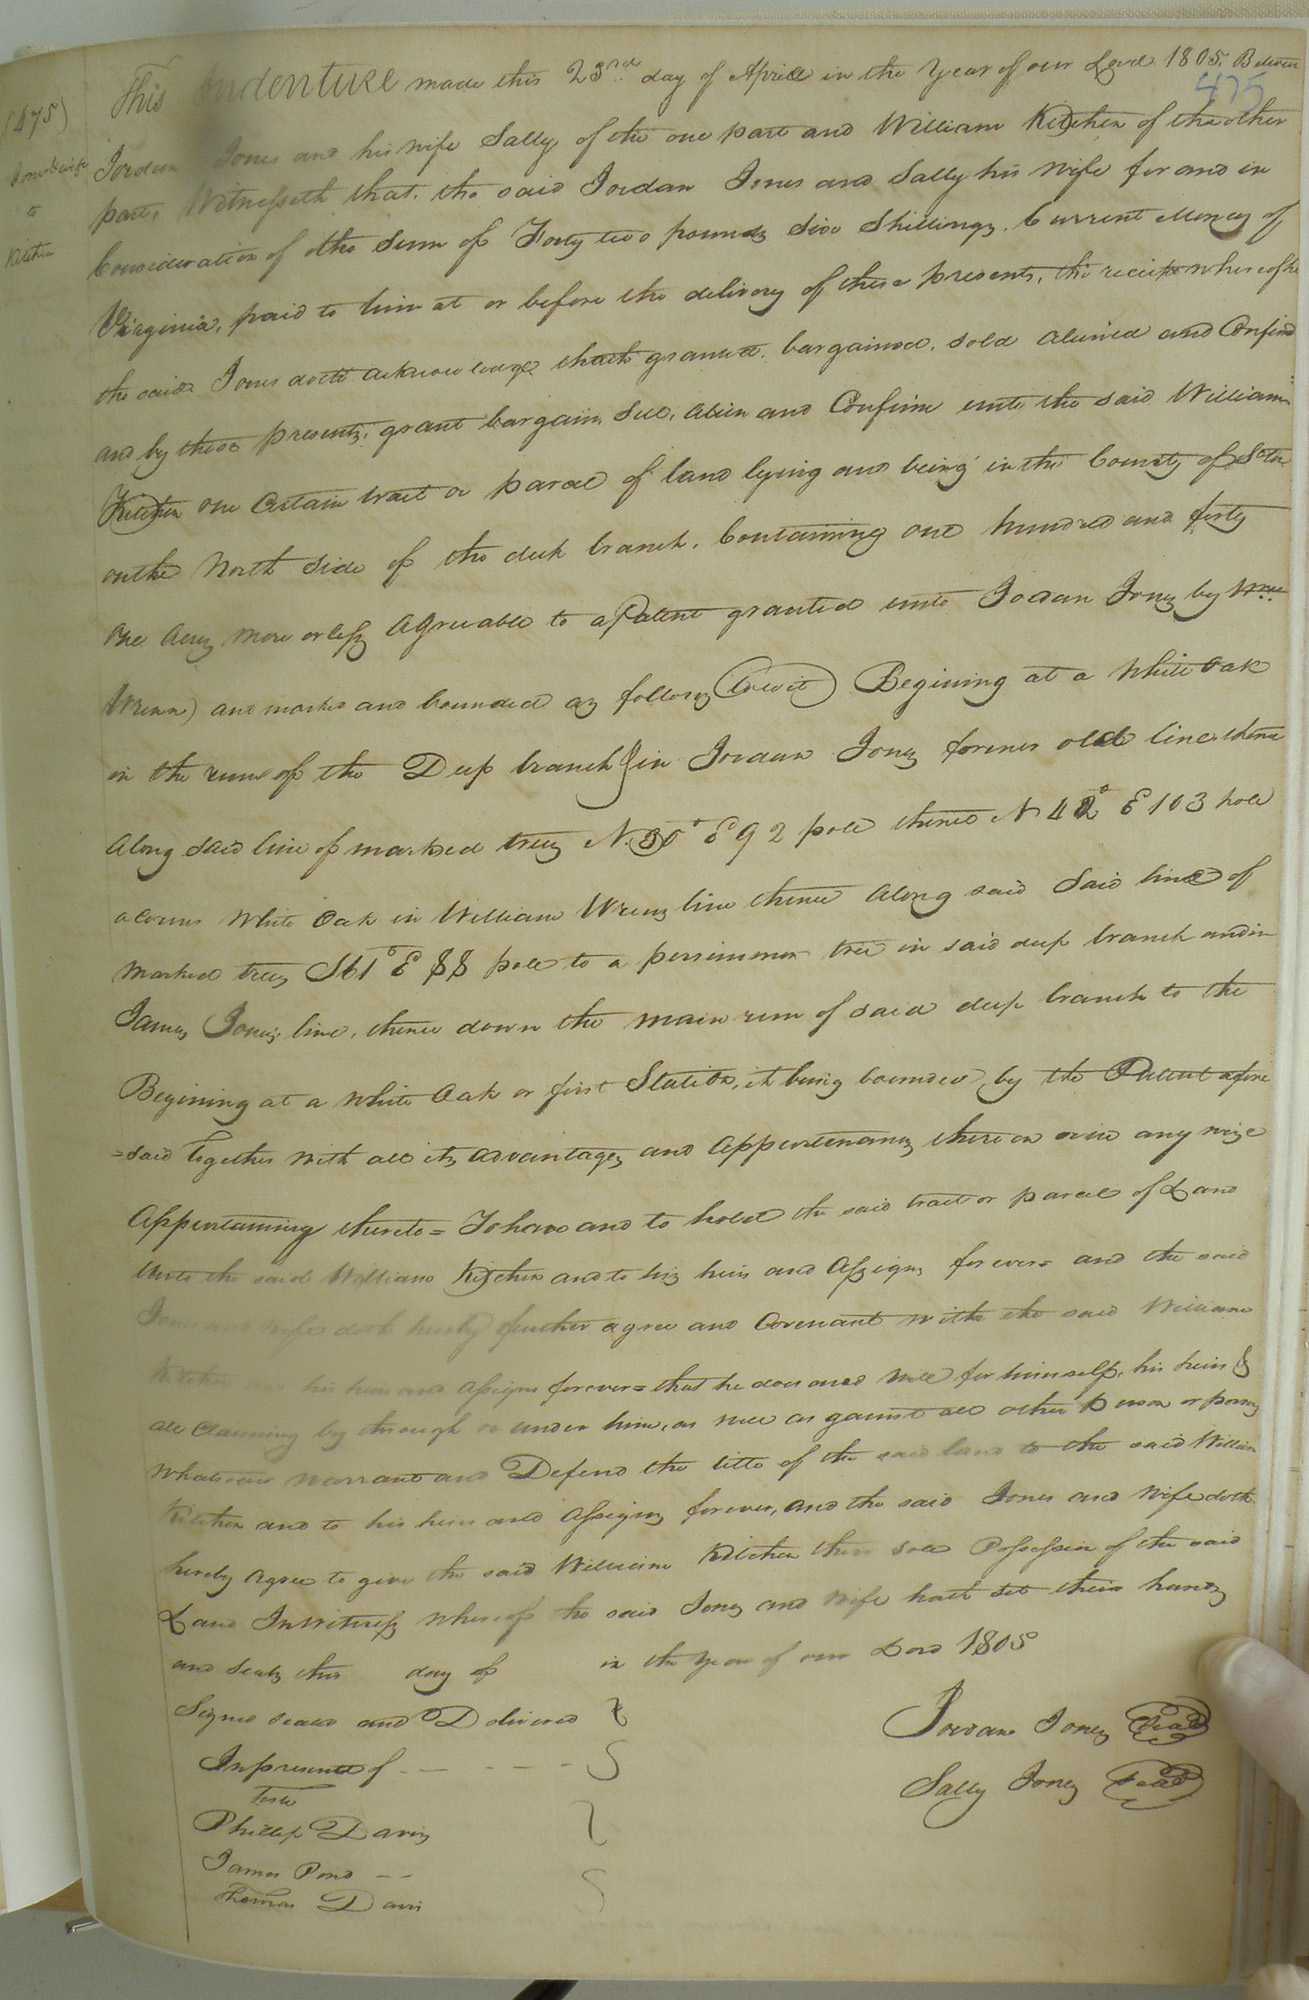 (475)
Jones & wife
to
Kitchen
475
This Indenture made this 23rd day of Aprile in the Year of our Lord 1805. Between
Jordan Jones and his wife Sally of the one part and William Kitchen of the other
part, Witnesseth that, the said Jordan Jones and Sally his wife for and in
Consideration of the Sum of Forty two pounds Six Shillings Current Money of
Virginia, paid to him at or before the delivery of these presents, the reciept whereof he
the said Jones doth acknowledge hath granted, bargained, sold aliened and Confirmd
and by these presents, grant bargain, Sell, alien and Confirm unto the said William
Kitchen one Certain tract or parcel of land lying and being in the County of Sotn
on the North Side of the deep branch, Containing one hundred and forty
one Acres more or less Agreeable to a Patent granted unto Jordan Jones by
Wrenn) and marked and bounded as follows (towit) Begining at a white Oak
in the run of the Deep branch & in Jordan Jones former old line thence
Along said line of marked trees N. 30° E 92 pole thence N 42° E 103 pole
a corner White Oak in William Wrens line thence Along said Said line of
marked trees S61° E 88 pole to a persimmon tree in said deep branch and in
James Jones's line, thence down the main run of said deep branch to the
Begining at a white Oak or first Station, it being bounded, by the Patent afore
=said Together with all its advantages and Appurtenances there on or in any wise
Appertaining thereto = To have and to hold the said tract or parcel of Land
Unto the said William Kitchen and to his heirs and Assigns forever = and the said
Jones and Wife doth hereby further agree and Covenant with the said William
Kitchen and his heirs and Assigns forever = that he does and will for himself, his heirs &
all Claiming by through or under him, as well as against all other Person or persons
Whatsoever warrant and Defend the title of the said land to the said William
Kitchen and to his heirs and Assigns forever, and the said Jones and Wife doth
hereby Agree to give the said William Kitchen then sole Possession of the said
Land In Witness Whereof the said Jones and wife hath Set their hands
and Seals this day of in the Year of our Lord 1805
Signed sealed and Delivered
In presents of
Teste
Phillip Davis
James Pond
Thomas Davis
Jordan Jones Seal
Sally Jones Seal